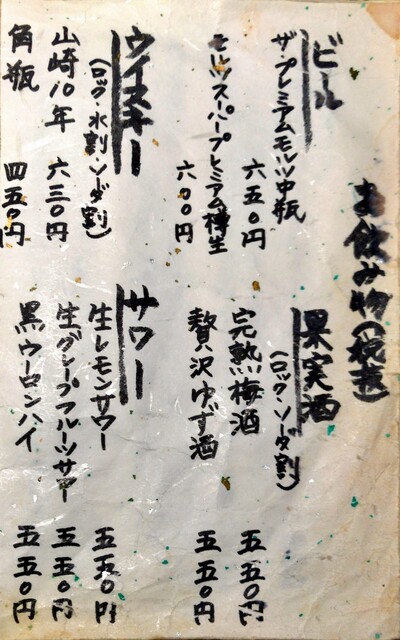 お飲み物(税抜)
ビール
ザ・プレミアムモルツ中瓶
六五〇円
モルツスーパープレミアム樽生
六〇〇円
ウイスキー
(ロック・水割・ソーダ割)
山崎10年 六三〇円
角瓶 四五〇円
果実酒
(ロック・ソーダ割)
完熟梅酒 五五〇円
贅沢ゆず酒 五五〇円
サワー
生レモンサワー 五五〇円
生グレープフルーツサワー 五五〇円
黒ウーロンハイ 五五〇円